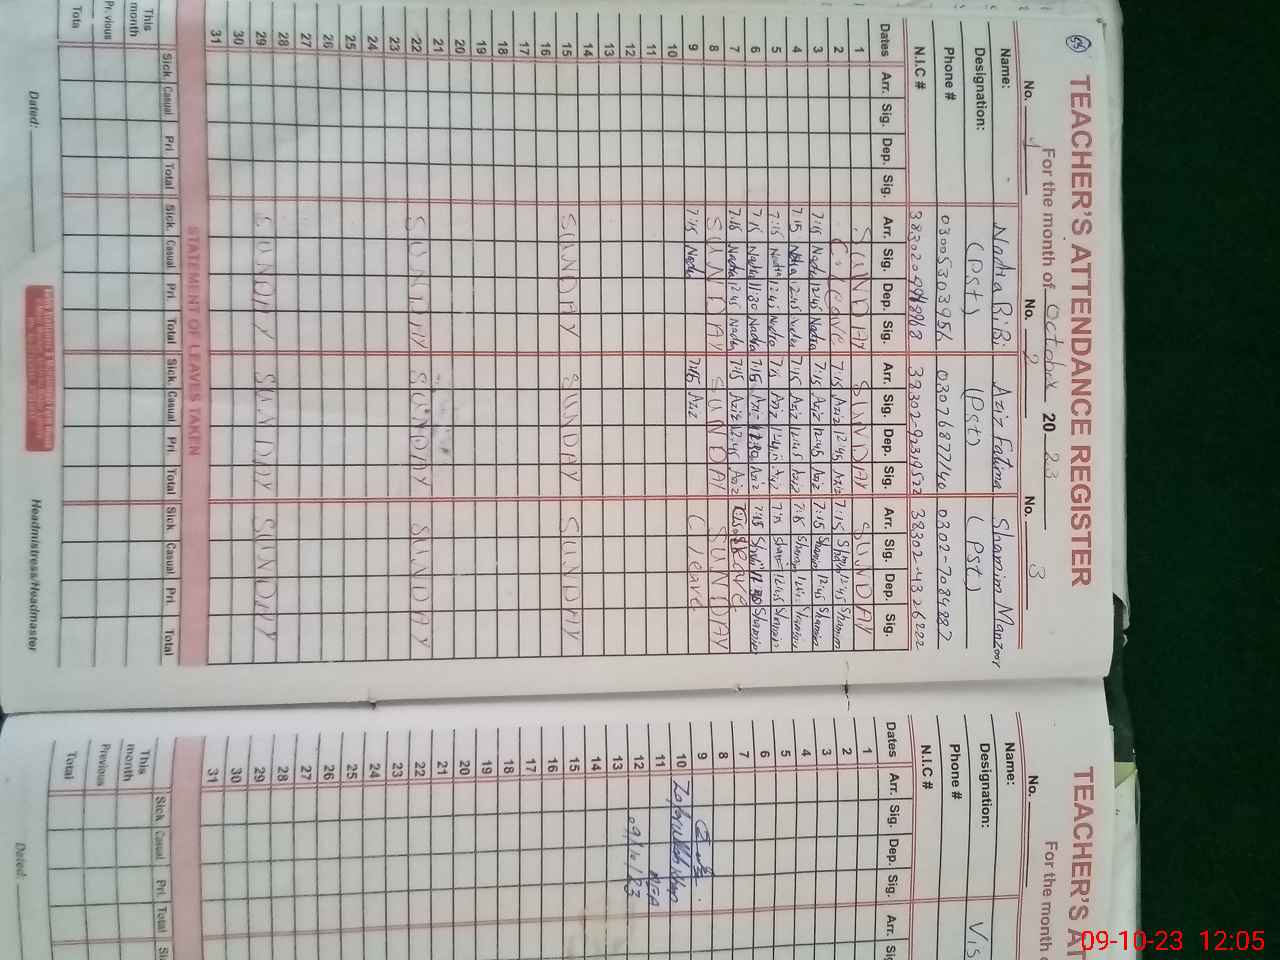 TEACHER'S ATTENDANCE REGISTER
For the month of October 2023
No. No. 2 No. 3
Name: Nadia BiBi Aziz Fatima Shamim Manzoor
Designation: (Pst) (Pst) (Pst)
Phone # 03005303956 03076877140 0302-7084887
N.I.C #
Dates Arr. Sig. Dep. Sig. Arr. Sig. Dep. Sig. Arr. Sig. Dep. Sig. Arr. Sig. Dep. Sig.
1 SUNDAY SUNDAY SUNDAY
2 C. Leave 7:15 Aziz 12:45 Aziz 7:15 Sham 12:45 Shamim
3 7:15 Nadia 12:45 Nadia 7:15 Aziz 12:45 Aziz 7:15 Shamim 12:45 Shamim
4 7:15 Nadia 12:45 Nadia 7:15 Aziz 12:45 Aziz 7:15 Shamim 12:45 Shamim
5 7:15 Nadia 12:45 Nadia 7:15 Aziz 12:45 Aziz 7:15 Shamim 12:45 Shamim
6 7:15 Nadia 11:30 Nadia 7:15 Aziz Aziz 7:15 Shamim Shamim
7 7:15 Nadia 12:45 Nadia 7:15 Aziz 12:45 Aziz Leave
8 SUNDAY SUNDAY SUNDAY
9 7:15 Nadia 7:15 Aziz C leave
10
11
12
13
14
15 SUNDAY SUNDAY SUNDAY
16
17
18
19
20
21
22 SUNDAY SUNDAY SUNDAY
23
24
25
26
27
28
29 SUNDAY SUNDAY SUNDAY
30
31
STATEMENT OF LEAVES TAKEN
Sick Casual Pri Total Sick. Casual. Pri. Total Sick. Casual Pri. Total Sick Casual Pri Total
This month
Pr. vious
Tota
Dated: Headmistress/Headmaster
TEACHER'S AT
For the month
No.
Name:
Designation: Vis
Phone #
N.I.C #
Dates Arr. Sig. Dep. Sig. Arr.
1
2
3
4
5
6
7
8
9
10
11 MEA
12 09/10/23
13
14
15
16
17
18
19
20
21
22
23
24
25
26
27
28
29
30
31
Sick Casual Pri. Total
This month
Previous
Total
Dated:
09-10-23 12:05